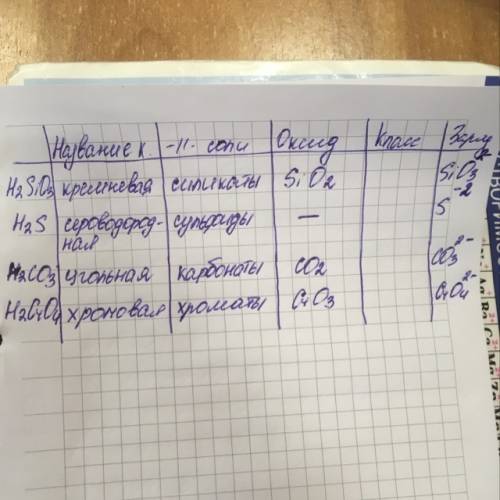 Название к. -11- соли Оксид Класс Заряд
H2SiO3 кремневая силикаты SiO2 SiO3 -2
H2S сероводород- сульфиды — S
ная
H2CO3 угольная карбонаты CO2 CO3 2-
H2CrO4 хромовая хроматы CrO3 CrO4 2-